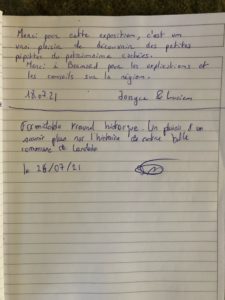 Merci pour cette exposition, c'est un
vrai plaisir de découvrir des petites
pépites du patrimoine cachées.
Merci à Bernard pour les explications et
les conseils sur la région.
18.07.21
Formidable travail historique. Un plaisir d'en
savoir plus sur l'histoire de notre belle
commune de
le 26/07/21